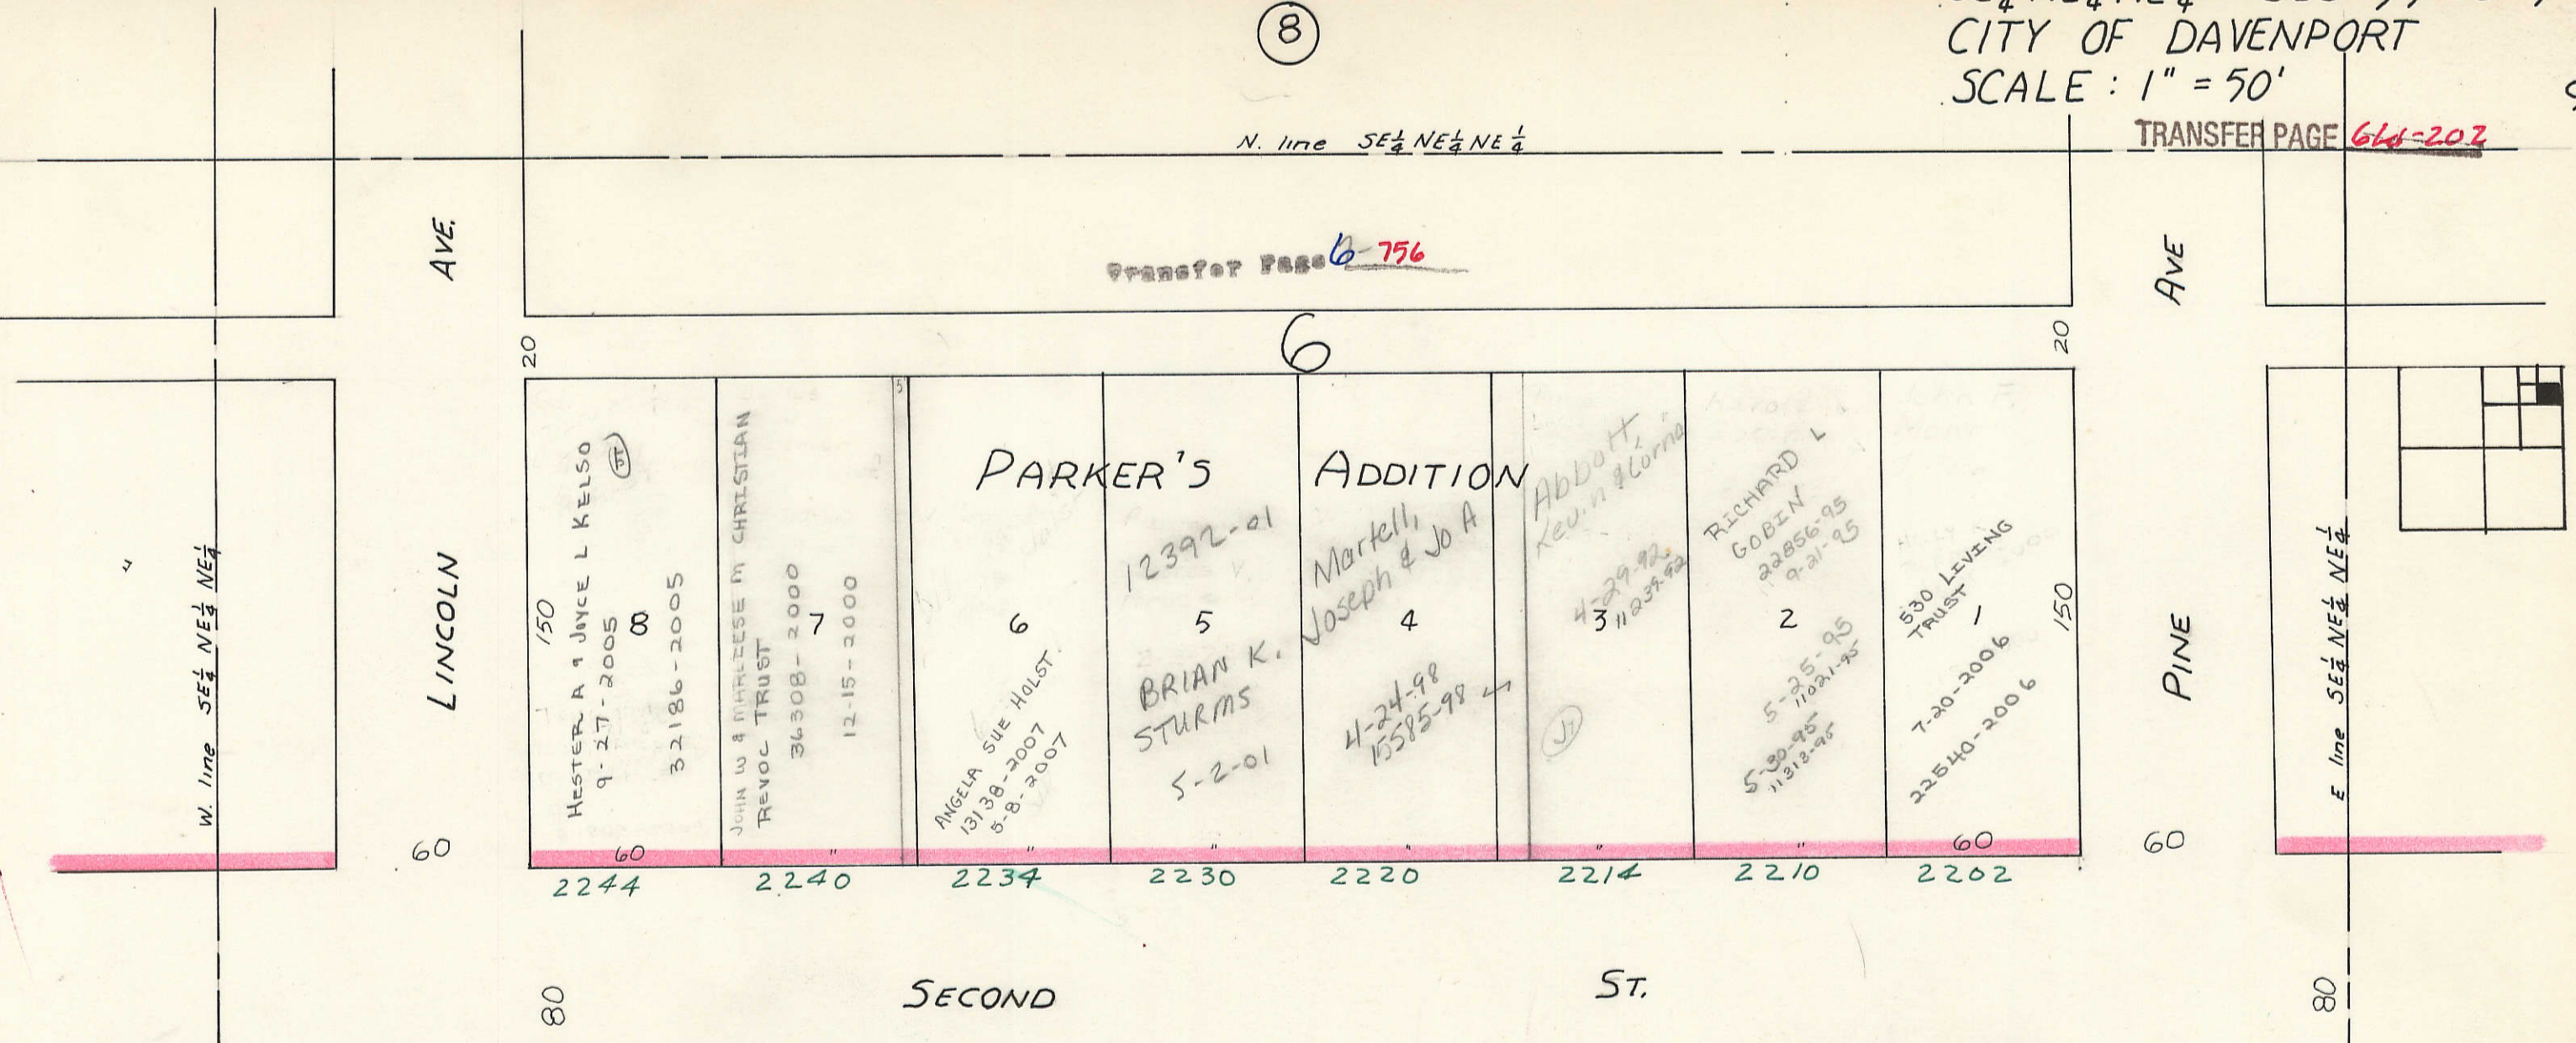 8
CITY OF DAVENPORT
SCALE : 1" = 50'
N. line SE¼ NE¼ NE¼
TRANSFER PAGE
Transfer Page 6-756
AVE.
AVE
20
6
20
PARKER'S ADDITION
HESTER A & JOYCE L KELSO
JT
9-27-2005
32186-2005
150
8
JOHN W & MARLEESE M CHRISTIAN
REVOC TRUST
36308-2000
12-15-2000
7
5
6
ANGELA SUE HOLST
13138-2007
5-8-2007
12392-01
5
BRIAN K.
STURMS
5-2-01
Martell,
Joseph & Jo A
4
4-24-98
15585-98
Abbott,
Kevin & Lorna
4-29-92
11239-92
3
JT
RICHARD L
GOBIN
22856-95
9-21-95
2
5-25-95
11021-95
5-30-95
11313-95
530 LIVING
TRUST
1
7-20-2006
22540-2006
150
W. line SE¼ NE¼ NE¼
LINCOLN
PINE
E line SE¼ NE¼ NE¼
60
60 " " " " " " 60
60
2244 2240 2234 2230 2220 2214 2210 2202
SECOND ST.
80
80